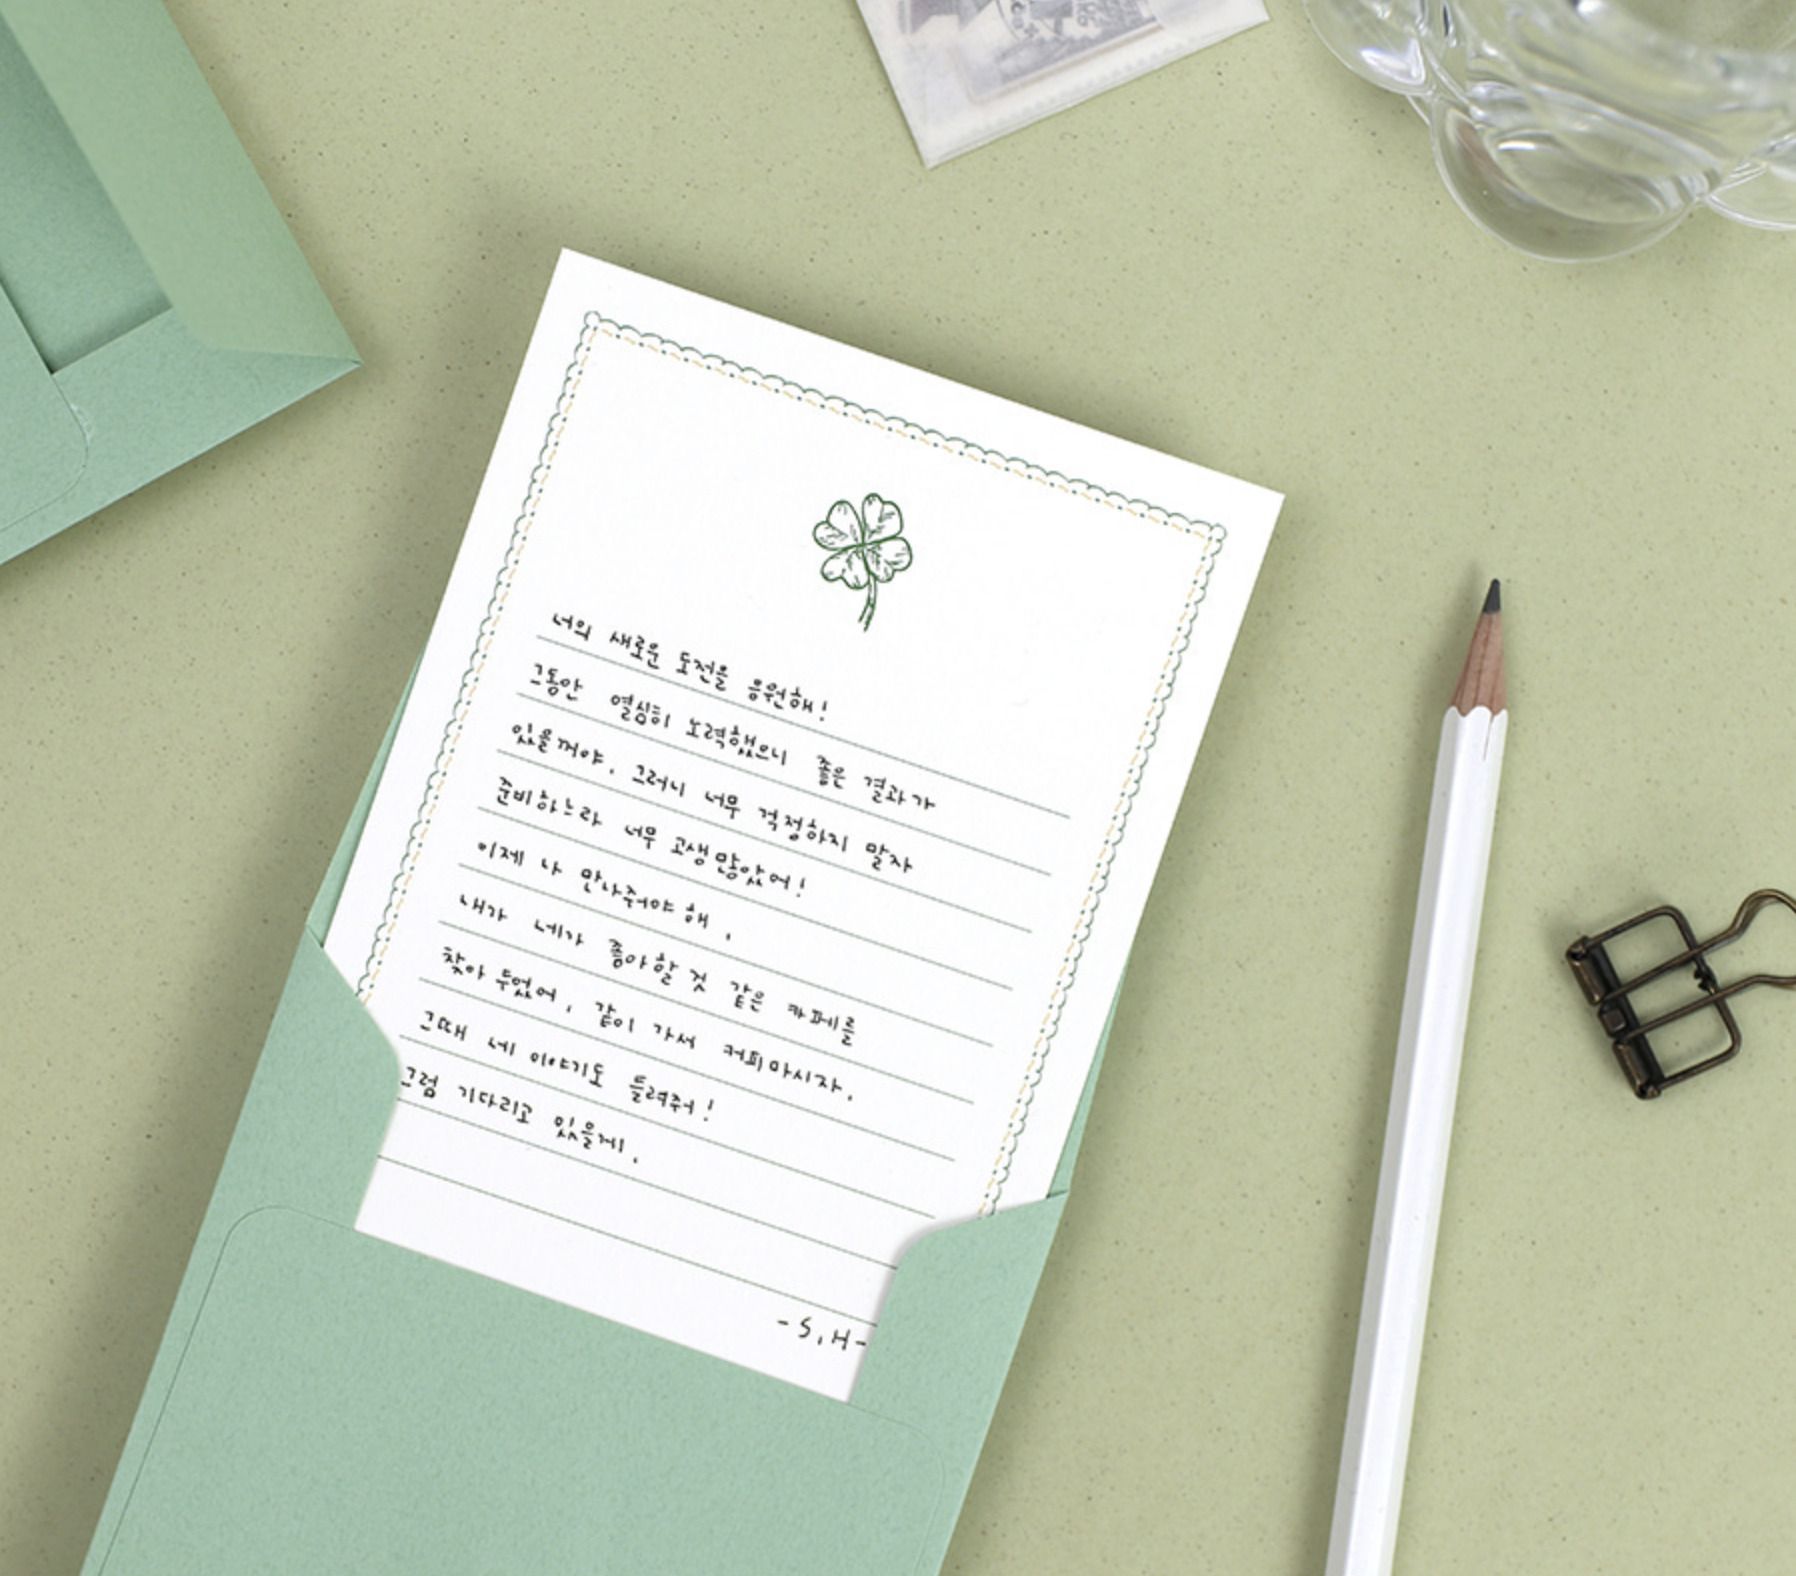 너의 새로운 도전을 응원해!
그동안 열심히 노력했으니 좋은 결과가
있을꺼야. 그러니 너무 걱정하지 말자
준비하느라 너무 고생많았어!
이제 나 만나줘야 해.
내가 네가 좋아할것 같은 카페를
찾아 두었어. 같이 가서 커피마시자.
그때 네 이야기도 들려줘!
그럼 기다리고 있을게.
- S.H-